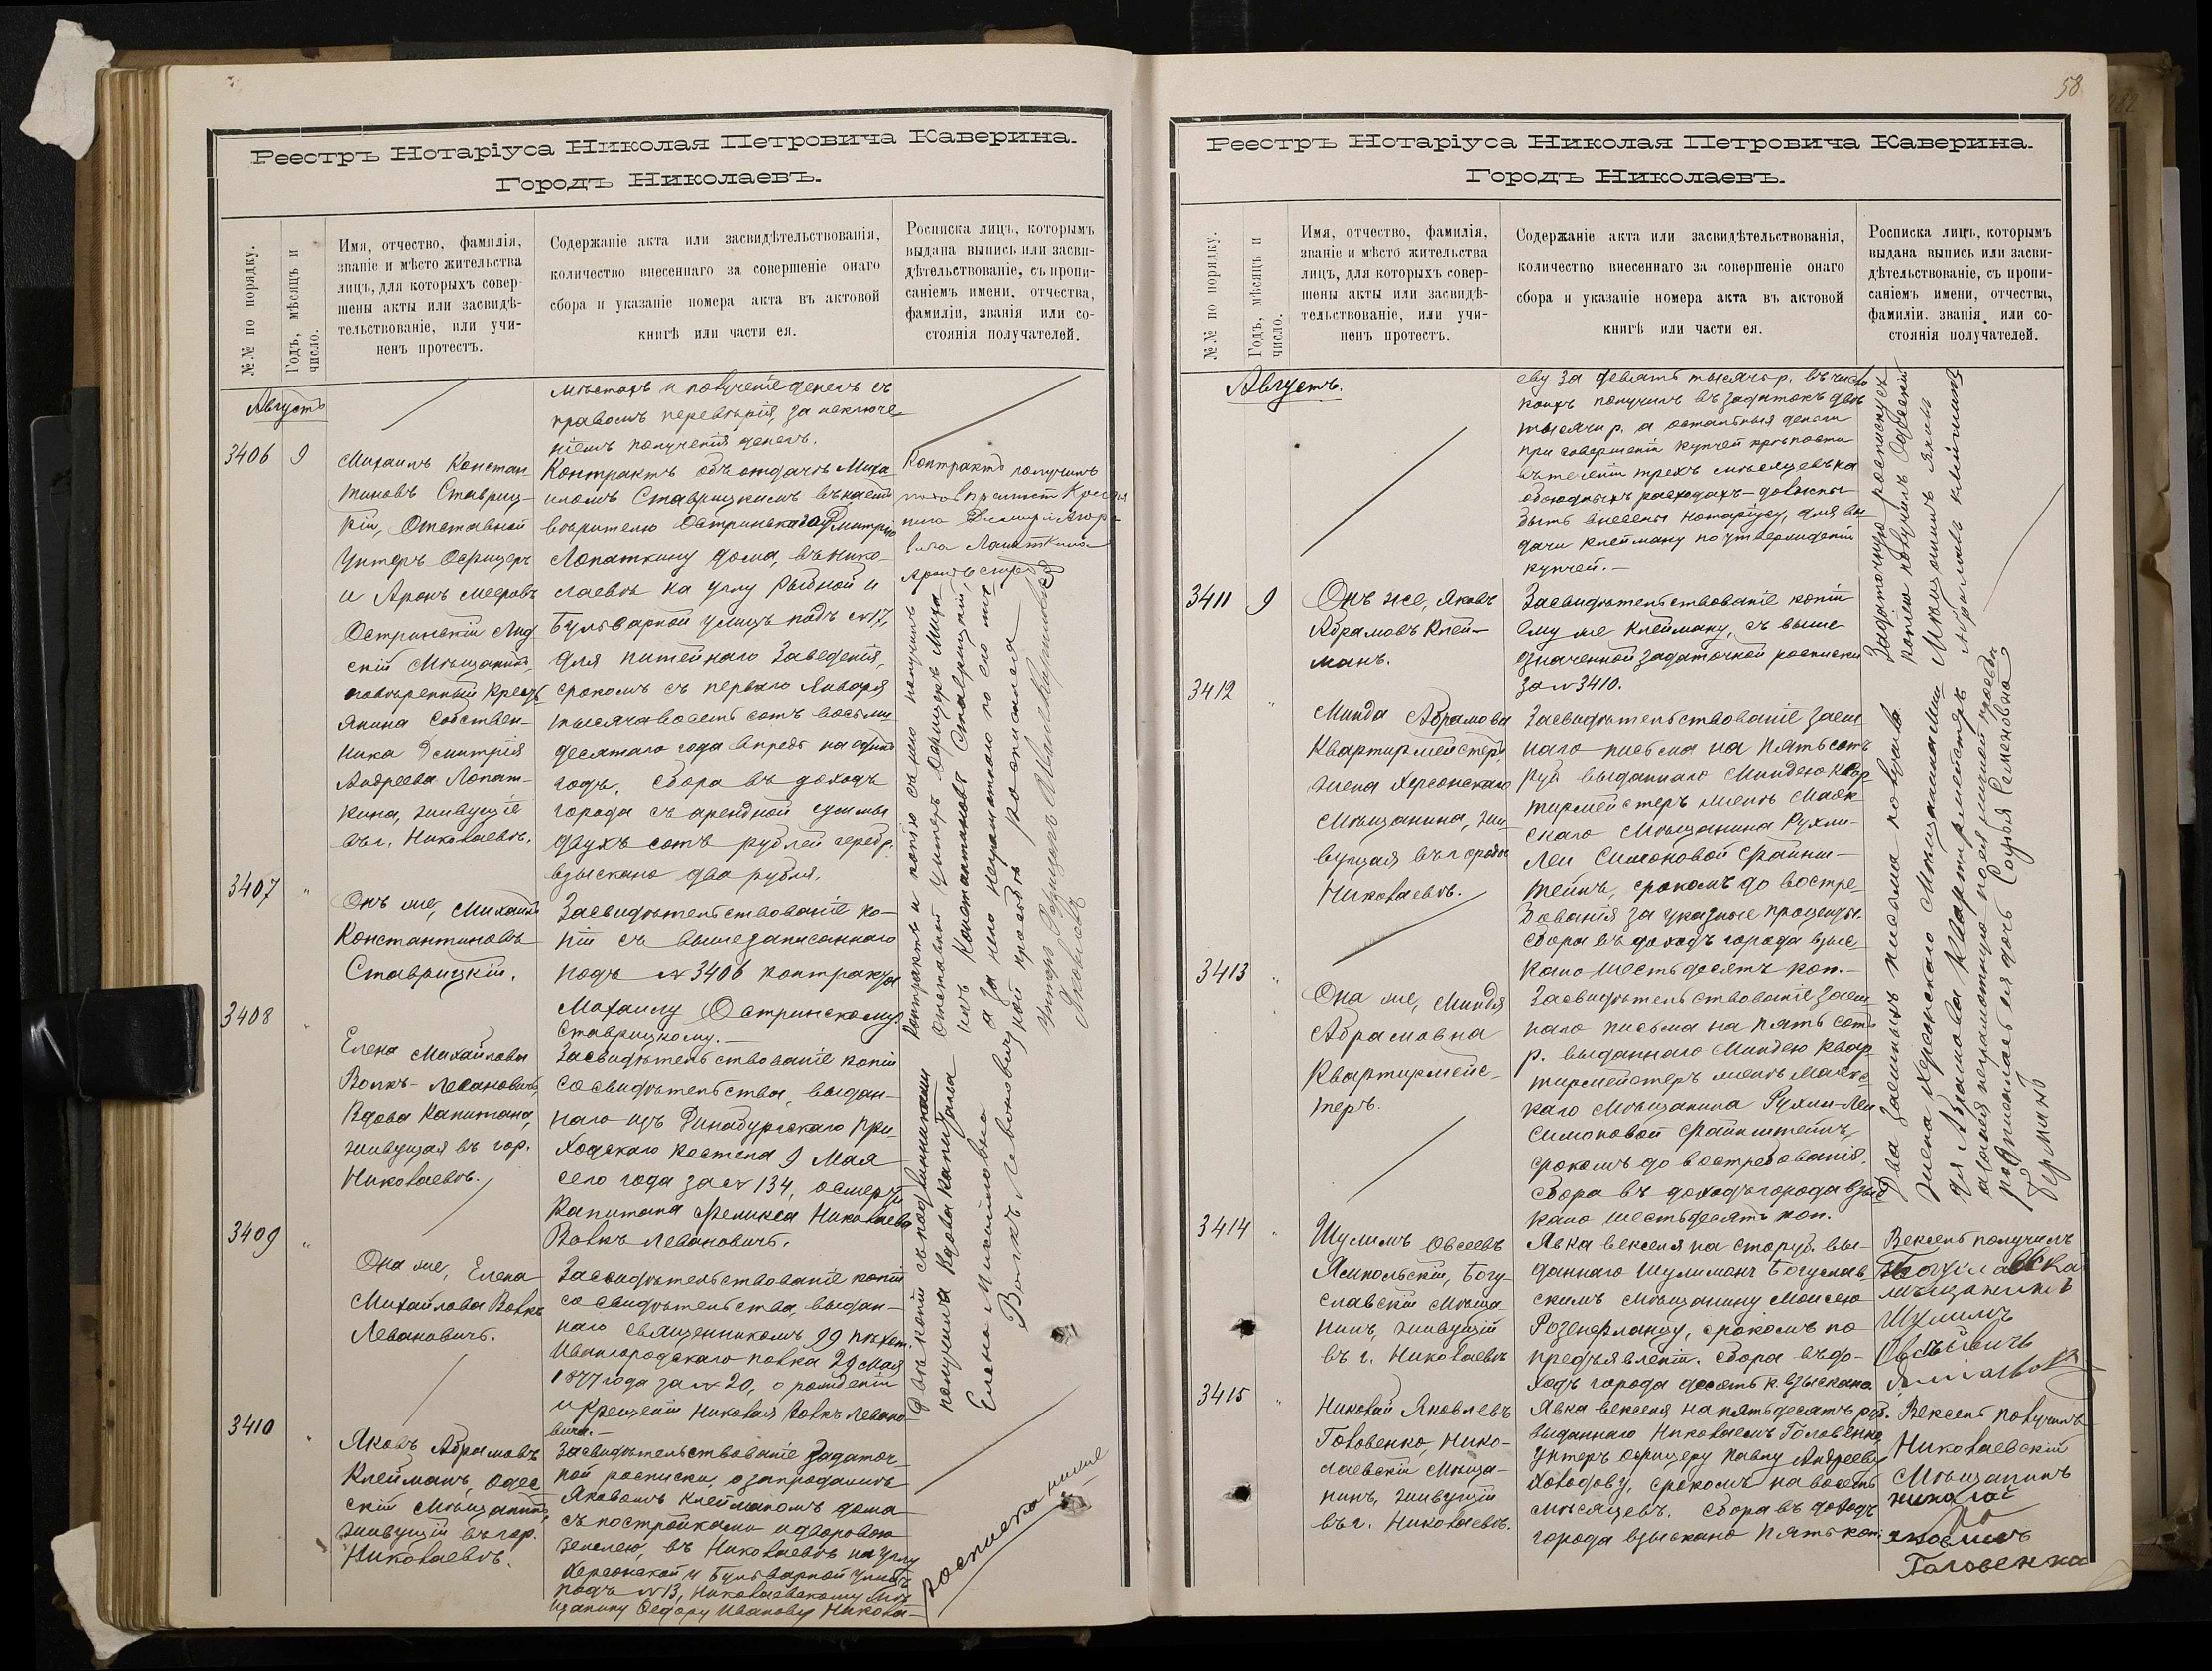 Реестръ Нотаріуса Николая Петровича Каверина.
Городъ Николаевъ.
№№ по порядку.
Годъ, мѣсяцъ и
число.
Имя, отчество, фамилія,
званіе и мѣсто жительства
лицъ, для которыхъ совер-
шены акты или засвидѣ-
тельствованіе, или учи-
ненъ протестъ.
Содержаніе акта или засвидѣтельствованія,
количество внесеннаго за совершеніе онаго
сбора и указаніе номера акта въ актовой
книгѣ или части ея.
Росписка лицъ, которымъ
выдана выпись или засви-
дѣтельствованіе, съ пропи-
саніемъ имени, отчества,
фамиліи, званія или со-
стоянія получателей.
Августъ
мѣстахъ и полученіе денегъ съ
правомъ передовѣрія, за исключе-
ніемъ полученія денегъ.
3406 9
Михаилъ Констан
тиновъ Ставриц-
кій, Отставной
Унтеръ Офицеръ
и Аронъ Мееровъ
Остринскій Лид
скій Мѣщанинъ,
повѣренный Кресть
янина Собствен-
ника Дмитрія
Андреева Лопат-
кина, живущіе
въ г. Николаевѣ.
Контрактъ объ отдачѣ Миха
иломъ Ставрицкимъ въ наемъ
вѣрителю Остринскаго Дмитрію
Лопаткину дома, въ Нико-
лаевѣ на углу Рыбной и
Бульварной улицъ подъ №17,
для питейнаго заведенія,
срокомъ съ перваго Января
тысяча восемь сотъ восьми
десятаго года впредь на одинъ
годъ. Сбора въ доходъ
города съ арендной суммы
двухъ сотъ рублей серебр.
взыскано два рубля.
Контрактъ получилъ
Лопаткина
3407 "
Онъ же, Михаилъ
Константиновъ
Ставрицкій.
Засвидѣтельствованіе ко-
піи съ вышезаписаннаго
подъ № 3406 контракта
Михаилу Остринскому
Ставрицкому.
Контрактъ и копію съ него получилъ
Отставной Унтеръ Офицеръ Миха
илъ Константиновъ Ставрицкій,
а за него неграмотнаго по его лич
ной просьбѣ росписался
Унтеръ Офицеръ
Яковлевъ
3408 "
Елена Михайлова
Волкъ-Левановичъ,
Вдова Капитана,
живущая въ гор.
Николаевѣ.
Засвидѣтельствованіе копіи
со свидѣтельства, выдан-
наго изъ Динабургскаго При-
ходскаго костела 9 Мая
сего года за № 134, о смерти
Капитана Феликса Николаева
Волкъ Левановичъ.
3409 "
Она же, Елена
Михайлова Волкъ
Левановичъ.
Засвидѣтельствованіе копіи
со свидѣтельства, выдан-
наго Священникомъ 99 пѣхот.
Ивангородскаго полка 29 Мая
1877 года за № 20, о рожденіи
и крещеніи Николая Волкъ Левано-
вича.
Двѣ копіи съ подлинниками
получила Вдова Капитана
Елена Михайловна
Волкъ Левановичъ
3410 "
Яковъ Абрамовъ
Клейманъ, Одес
скій Мѣщанинъ,
живущій въ гор.
Николаевѣ.
Засвидѣтельствованіе задаточ-
ной росписки, о запродажѣ
Яковомъ Клейманомъ дома
съ постройками и дворовою
землею, въ Николаевѣ на углу
Херсонской и Бульварной улицъ
подъ № 13, Николаевскому Мѣ
щанину Федору Иванову Никола-
росписка ниже
58
Реестръ Нотаріуса Николая Петровича Каверина.
Городъ Николаевъ.
№№ по порядку.
Годъ, мѣсяцъ и
число.
Имя, отчество, фамилія,
званіе и мѣсто жительства
лицъ, для которыхъ совер-
шены акты или засвидѣ-
тельствованіе, или учи-
ненъ протестъ.
Содержаніе акта или засвидѣтельствованія,
количество внесеннаго за совершеніе онаго
сбора и указаніе номера акта въ актовой
книгѣ или части ея.
Росписка лицъ, которымъ
выдана выпись или засви-
дѣтельствованіе, съ пропи-
саніемъ имени, отчества,
фамиліи, званія, или со-
стоянія получателей.
Августъ.
еву за девять тысячъ р. въ число
коихъ получилъ въ задатокъ двѣ
тысячи р. а остальныя деньги
при совершеніи купчей крѣпости
въ теченіи трехъ мѣсяцевъ на
обоюдныхъ расходахъ – должны
быть внесены Нотаріусу, для вы
дачи Клейману по утвержденіи
купчей.–
3411 9
Онъ же, Яковъ
Абрамовъ Клей-
манъ.
Засвидѣтельствованіе копіи
ему же Клейману, съ выше
означенной задаточной росписки
за № 3410.
Задаточную росписку съ
копіею получилъ Одесскій
Мѣщанинъ Янкель
3412 "
Минда Абрамова
Квартирмейстеръ,
жена Херсонскаго
Мѣщанина, жи-
вущая въ городѣ
Николаевѣ.
Засвидѣтельствованіе заем
наго письма на пятьсотъ
руб. выданнаго Миндею Квар
тирмейстеръ женѣ Маяк
скаго Мѣщанина Рухли-
Леи Симоновой Файнш-
тейнъ, срокомъ до востре-
бованія за указные проценты.
Сбора въ доходъ города взыс-
кано шестьдесятъ коп.–
3413 "
Она же, Миндя
Абрамовна
Квартирмейс-
теръ.
Засвидѣтельствованіе заем
наго письма на пять сотъ
р. выданнаго Миндею Квар
тирмейстеръ женѣ Маякс
каго Мѣщанина Рухли-Леи
Симоновой Файнштейнъ,
срокомъ до востребованія.
Сбора въ доходъ города взыс
кано шестьдесятъ коп.
Два заемныхъ письма получила
жена Херсонскаго Мѣщанина Мин-
дя Абрамова Квартирмейстеръ
а за нея неграмотную по ея личной просьбѣ
росписалась
3414 "
Шулимъ Овсеевъ
Ямпольскій, Богу-
славскій Мѣща
нинъ, живущій
въ г. Николаевѣ
Явка векселя на сто руб. вы-
даннаго Шулимомъ Богуслав
скимъ Мѣщанину Моисею
Розенфланцу, срокомъ по
предъявленіи. Сбора въ до-
ходъ города десять к. взыскано.
Вексель получилъ
мѣщанинъ
Шулимъ
3415 "
Николай Яковлевъ
Головенко, Нико-
лаевскій Мѣща-
нинъ, живущій
въ г. Николаевѣ.
Явка векселя на пятьдесятъ руб.
выданнаго Николаемъ Головенко
Унтеръ Офицеру Павлу Андрееву
Холодову, срокомъ на восемь
мѣсяцевъ. Сбора въ доходъ
города взыскано пять коп.
Вексель получилъ
Николаевскій
Мѣщанинъ
николай
Головенко